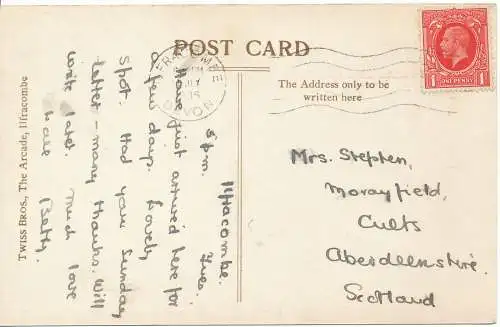 POST CARD
The Address only to be
written here
ILFRACOMBE
JU
35
DEVON
ONE PENNY
1 1
TWISS BROS., The Arcade, Ilfracombe
Ilfracombe.
5 pm. Tues.
Have just arrived here for
a few days. Lovely
Spot. Had your Sunday
letter - many thanks. Will
write later. Much love
to all
Betty.
Mrs. Stephen,
Morayfield,
Cults
Aberdeenshire.
Scotland